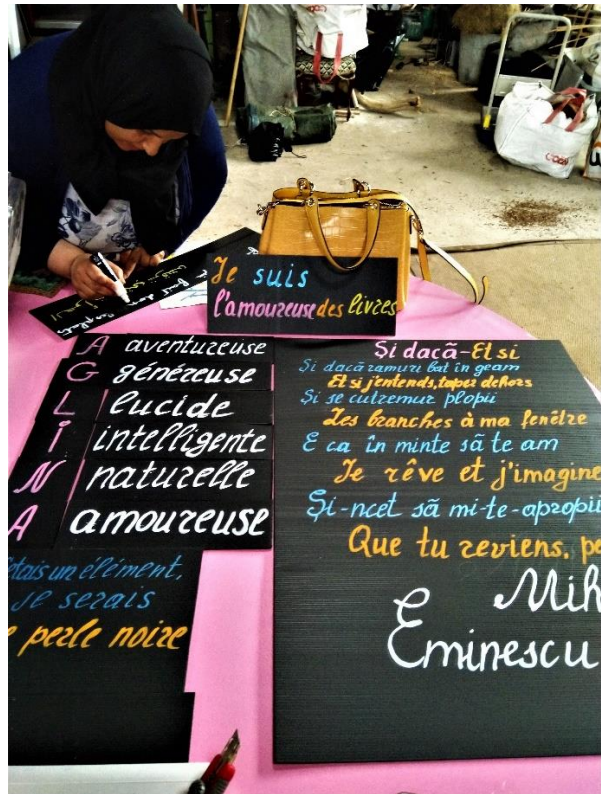 Je suis
l'amoureuse des livres
A aventureuse
G généreuse
L lucide
I intelligente
N naturelle
A amoureuse
un élément,
je serais
perle noire
Şi dacă-Et si
Şi dacă ramuri bat în geam
Et si j'entends, taper dehors
Şi se cutremur plopii
Les branches à ma fenêtre
E ca în minte să te am
Je rêve et j'imagine
Şi-ncet să mi-te-apropii
Que tu reviens,
Mih
Eminescu